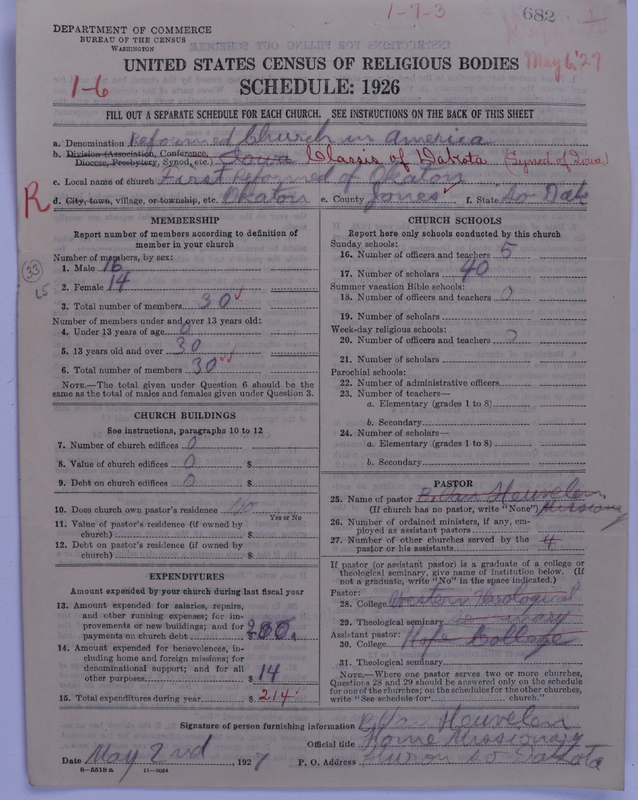 1-7-3
682
DEPARTMENT OF COMMERCE
BUREAU OF THE CENSUS
WASHINGTON
UNITED STATES CENSUS OF RELIGIOUS BODIES
May 6, '27
1-6
SCHEDULE: 1926
FILL OUT A SEPARATE SCHEDULE FOR EACH CHURCH. SEE INSTRUCTIONS ON THE BACK OF THIS SHEET
a. Denomination Reformed Church in America
b. Division (Association, Conference, Diocese, Presbytery, Synod, etc.) Iowa Classis of Dakota (Synod of Iowa)
c. Local name of church First Reformed of Okaton
R
d. City, town, village, or township, etc. Okaton e. County Jones f. State So Dak
MEMBERSHIP
Report number of members according to definition of
member in your church
Number of members, by sex:
33
1. Male 16
2. Female 14
3. Total number of members 30
Number of members under and over 13 years old:
4. Under 13 years of age 0
5. 13 years old and over 30
6. Total number of members 30
NOTE.—The total given under Question 6 should be the
same as the total of males and females given under Question 3.
CHURCH BUILDINGS
See instructions, paragraphs 10 to 12
7. Number of church edifices 0
8. Value of church edifices 0 $
9. Debt on church edifices 0 $
10. Does church own pastor's residence no
Yes or No
11. Value of pastor's residence (if owned by
church) $
12. Debt on pastor's residence (if owned by
church) $
EXPENDITURES
Amount expended by your church during last fiscal year
13. Amount expended for salaries, repairs,
and other running expenses; for im-
provements or new buildings; and for
payments on church debt $ 200.
14. Amount expended for benevolences, in-
cluding home and foreign missions; for
denominational support; and for all
other purposes $ 14
15. Total expenditures during year $ 214
CHURCH SCHOOLS
Report here only schools conducted by this church
Sunday schools:
16. Number of officers and teachers 5
17. Number of scholars 40
Summer vacation Bible schools:
18. Number of officers and teachers 0
19. Number of scholars
Week-day religious schools:
20. Number of officers and teachers 0
21. Number of scholars
Parochial schools:
22. Number of administrative officers
23. Number of teachers—
a. Elementary (grades 1 to 8)
b. Secondary
24. Number of scholars—
a. Elementary (grades 1 to 8)
b. Secondary
PASTOR
25. Name of pastor Heuvelen
(If church has no pastor, write "None") Missionary
26. Number of ordained ministers, if any, em-
ployed as assistant pastors
27. Number of other churches served by the
pastor or his assistants 4
If pastor (or assistant pastor) is a graduate of a college or
theological seminary, give name of institution below. (If
not a graduate, write "No" in the space indicated.)
Pastor:
28. College Western Theological
29. Theological seminary
Assistant pastor:
30. College Hope College
31. Theological seminary
NOTE.—Where one pastor serves two or more churches,
Questions 28 and 29 should be answered only on the schedule
for one of the churches; on the schedules for the other churches,
write "See schedule for church."
Signature of person furnishing information Heuvelen
Official title Home Missionary
Date May 2nd, 1927 P. O. Address Huron So Dakota
8—5518 a 11—9034